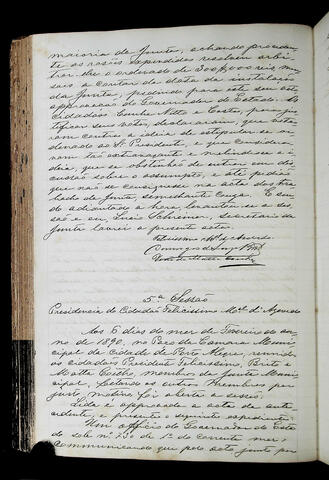 maioria da Junta, achando proceden-
te as rasões expendidas resolveu arbi-
trar-lhe o ordenado de 300$000 reis men-
saes a contar da data da installação
da Junta, pedindo para este seu acto
approvação do Governador do Estado. Os
Cidadãos Cunha Netto e Castro, para jus-
tificar seus actos, declararam, que vota-
vam contra a ideia de estipular-se or-
denado ao Presidente, o que considera-
vam tão extravagante e ridiculosa i-
deia, que se abstinham de entrar em dis-
cussão sobre o assumpto, e até pedião
que não se consignasse na acta dos tra-
balhos da Junta, semelhante cousa. E sen-
do adiantada a hora levantou-se a ses-
são e eu, Secretario da
Junta lavrei a presente acta.
Felicissimo Mel. de Azevedo
5ª Sessão
Presidencia do Cidadão Felicissimo Mel. d'Azevedo
Aos 6 dias do mez de Fevereiro do an-
no de 1890, no Paço da Camara Muni-
cipal da Cidade de Porto Alegre, reunidos
os cidadãos Presidente Felicissimo, Brito e
Motta Castro, membros da Junta Muni-
cipal, faltando os outros membros por
justo motivo foi aberta a sessão.
Lida e approvada a acta da ante-
cedente, é presente o seguinte expediente:
Um officio do Governador do Esta-
do sob nº de 1º do corrente mez,
communicando que pelo acto junto por